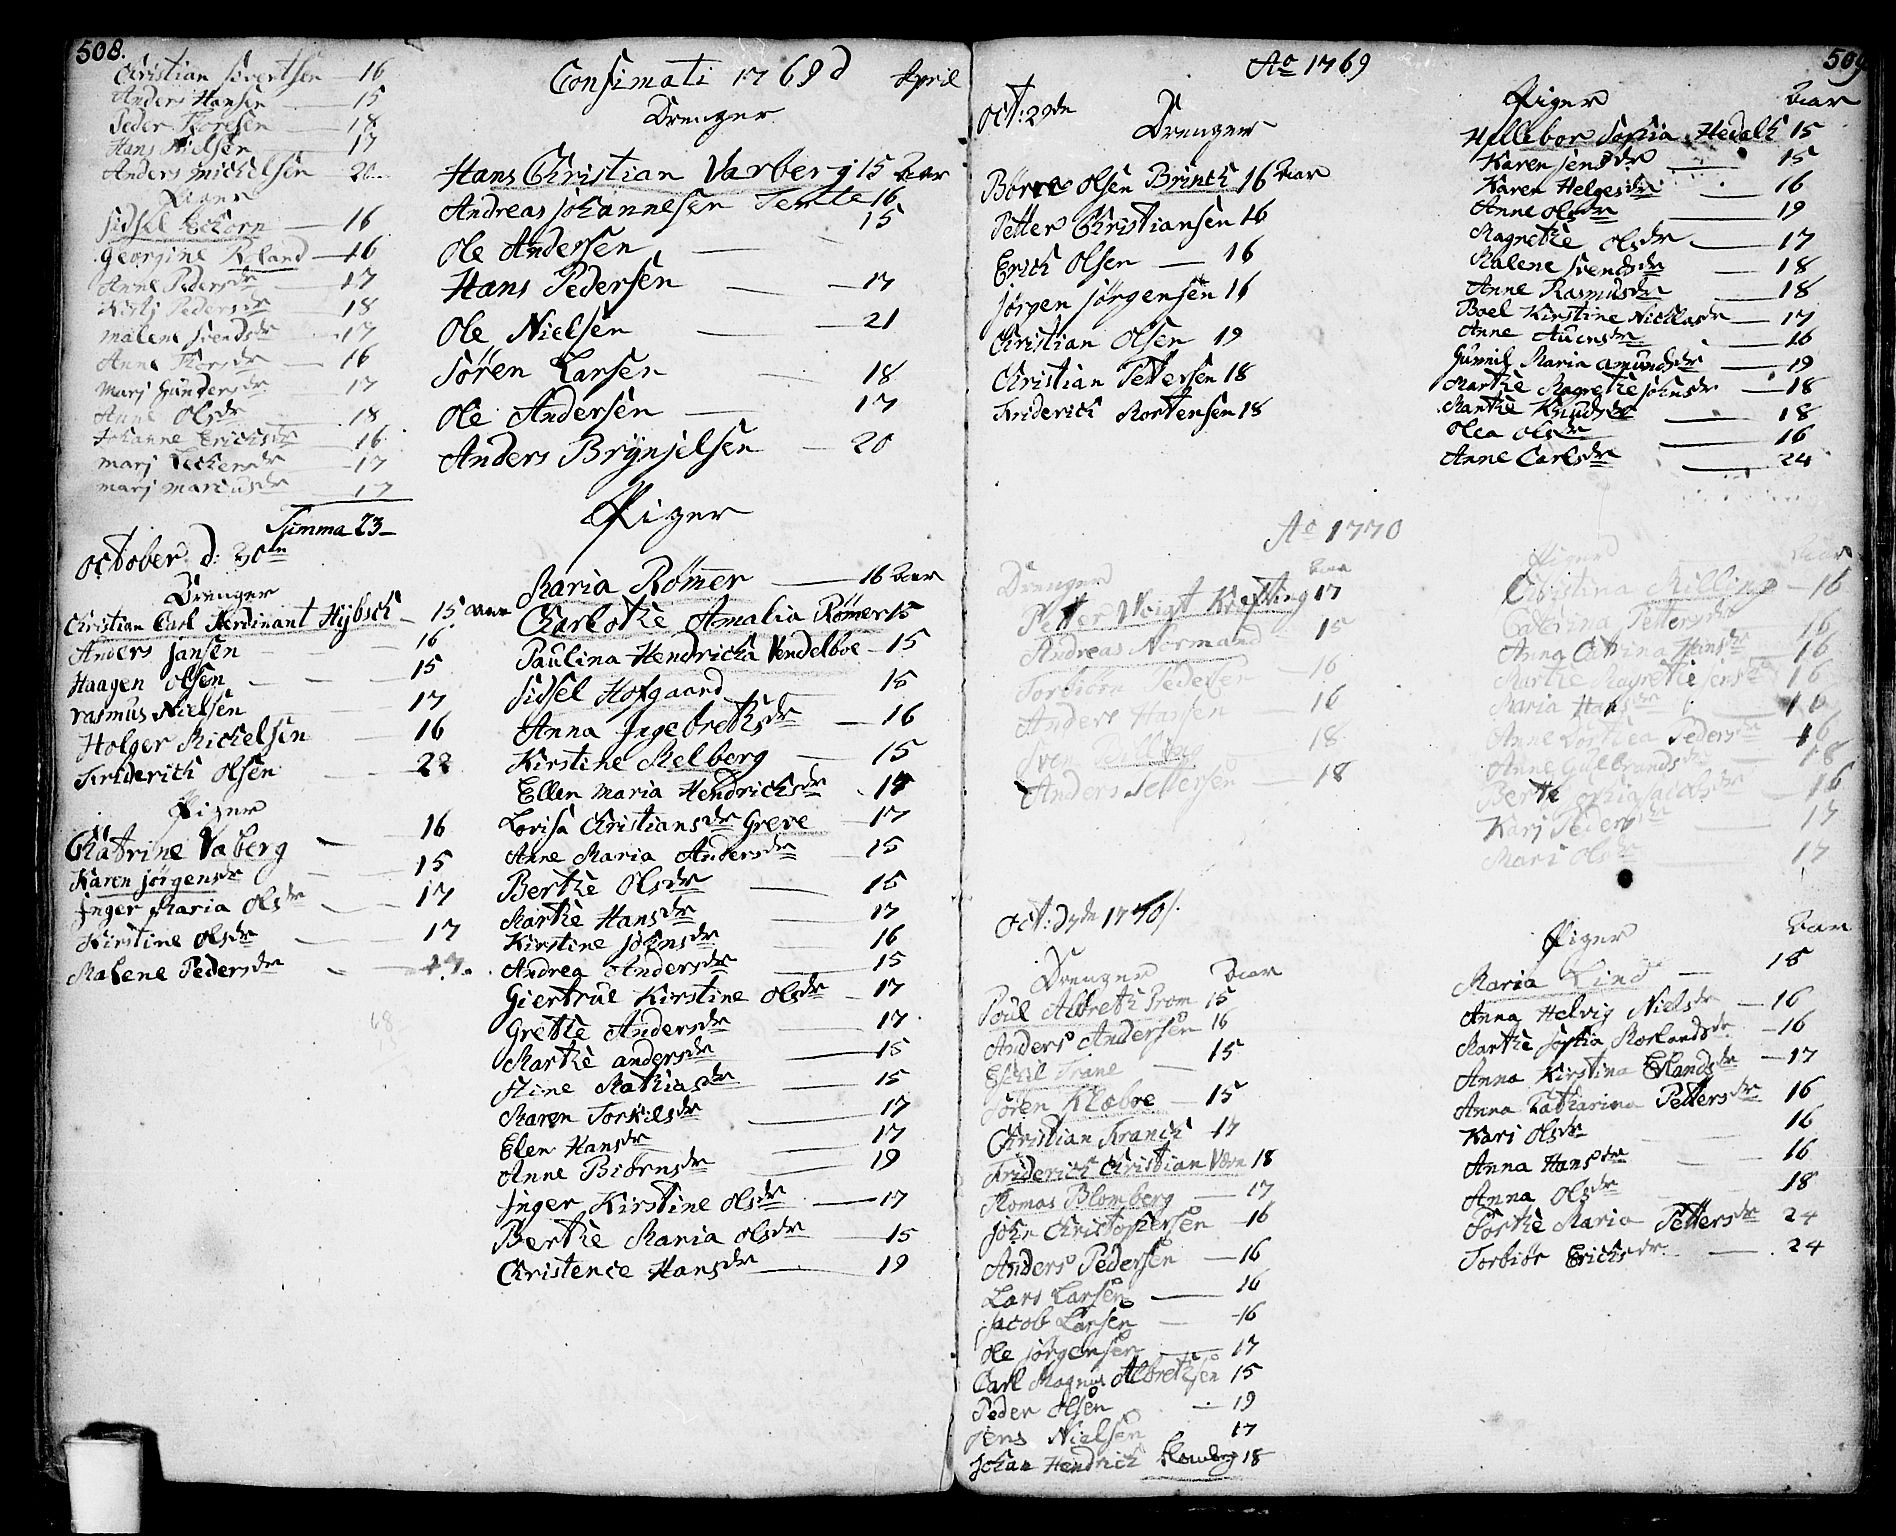 508.
Christian Sørentsen 16
Anders Hansen 15
Peder Thoresen 18
Hans Nielsen 17
Anders Mickelsen 20
Piger
Sidsel Echorn 16
Georgine Reland 16
Anne Pedersdr 17
Kistj Pedersdr 18
Malene Svendsdr 17
Anne Thorsdr 16
Marj Gundersdr 17
Anne Olsdr 18
Johanne Ericksdr 16
Marj 17
Marj Marcusdr 17
Summa 23
October d: 30te
Drenger
Christian Carl Ferdinant Hybsch 15 Aar
Anders Jansen 16
Haagen Olsen 15
Rasmus Nielsen 17
Holger Mickelsen 16
Friderich Olsen 22
Piger
Chatrine Vaberg 16
Karen Jørgensdr 15
Inger Maria Olsdr 17
Kirstine Olsdr 17
Malene Pedersdr 17
Confimati 1769 d April
Drenger
Hans Christian Varberg 15 Aar
Andreas Johannesen Tente 16
Ole Andersen 15
Hans Pedersen 17
Ole Nielsen 21
Søren Larsen 18
Ole Andersen 17
Anders Brynjelsen 20
Piger
Maria Rømer 16 Aar
Charlothe Amalia Rømer 15
Paulina Hendricha Vendelboe 15
Sidsel Hofgaard 15
Anna Ingebrethsdr 16
Kirstine Melberg 15
Ellen Maria Hendrichsdr 14
Lovisa Christiansdr Greve 17
Anne Maria Andersdr 15
Berthe Olsdr 15
Marthe Hansdr 17
Kirstine Johnsdr 16
Andrea Andersdr 15
Giertrue Kirstine Olsdr 17
Grethe Andersdr 17
Marthe Andersdr 15
Stine Mathiasdr 15
Maren Torkilsdr 17
Elen Hansdr 17
Anne Biørnsdr 19
Inger Kirstine Olsdr 17
Berthe Maria Olsdr 15
Christence Hansdr 19
Ao 1769
509
Oct: 29de
Drenger
Børre Olsen Brinch 16 Aar
Petter Christiansen 16
Erich Olsen 16
Jørgen Jørgensen 16
Christian Olsen 19
Christian Pettersen 18
Friderich Mortensen 18
Piger Aar
Hellebor Sophia Hedalh 15
Karen Jensdr 15
Karen Helgesdr 16
Anne Olsdr 19
Magrethe Olsdr 17
Malene Svendsdr 18
Anne Rasmusdr 18
Boel Kirstine Nicklasdr 17
Anne Auensdr 16
Gunnil Maria Amundsdr 19
Marthe Magrethe Johnsdr 18
Marthe Knudsdr 18
Olea Olsdr 16
Anne Carlsdr 24
Ao 1770
Drenger Aar
Petter Voigt Krefting 17
Andreas Normand 15
Torbiørn Pedersen 16
Anders Hansen 16
Sven 18
Anders Pettersen 18
Piger Aar
Christina Milling 16
Catrina Pettersdr 16
Anna Catrina Hansdr 16
Marthe Magrethe Jensdr 16
Maria Hansdr 16
Anne Dorthea Pedersdr 16
Anne Gulbrandsdr 18
Berthe Sophia Jacobsdr 16
Karj Pedersdr 17
Mari Olsdr 17
Oct: d 7de 1770/.
Drenger Aar
Poul Albreth Prom 15
Anders Andersen 16
Eschil Trane 15
Søren Klæbre 15
Christian Kranch 17
Friderich Christian Værn 18
Thomas Blomberg 17
John Christophersen 16
Anders Pedersen 16
Lars Larsen 16
Jacob Larsen 16
Ole Jørgensen 17
Carl Magnus Albrethsen 15
Peder Olsen 19
Jens Nielsen 17
Johan Hendrich Blomberg 18
Piger Aar
Maria Lind 15
Anna Helvig Nielsdr 16
Marthe Sophia Morlandsdr 16
Anna Kirstina Erlandsdr 17
Anna Catharina Pettersdr 16
Kari Olsdr 16
Anna Hansdr 16
Anna Olsdr 18
Dorthe Maria Pettersdr 24
Torbiør Erichsdr 24